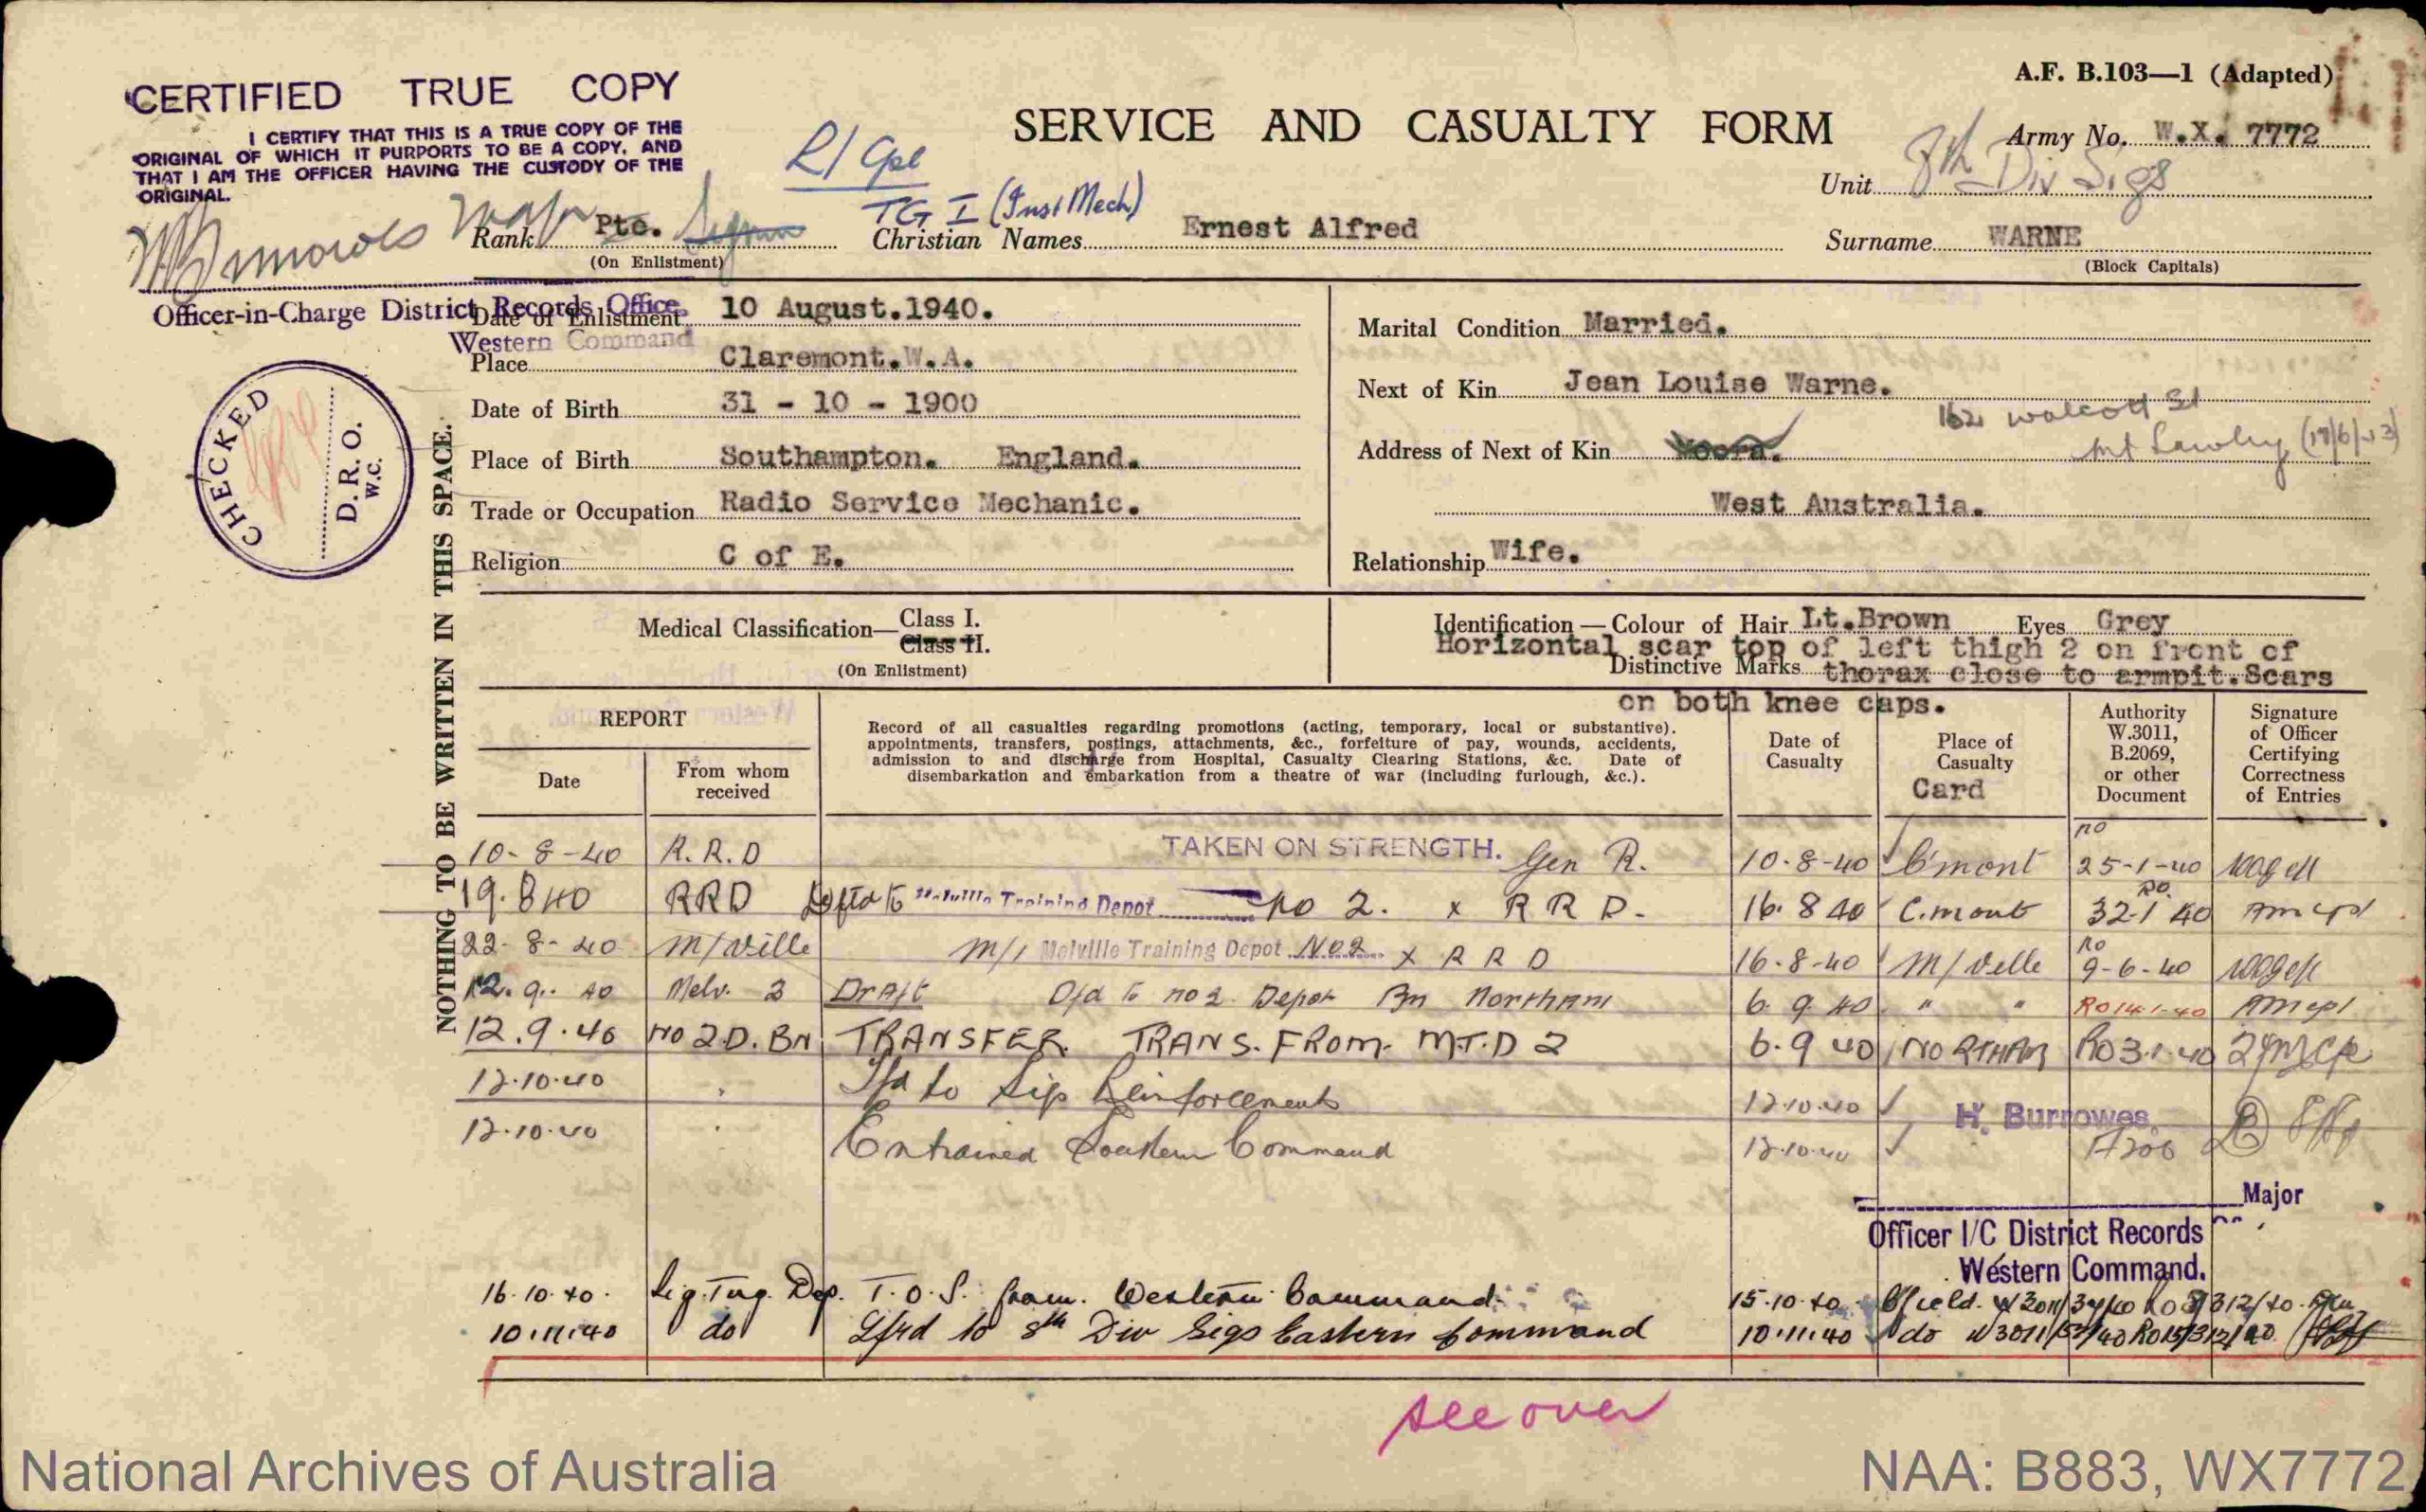 A.F. B.103—1 (Adapted)
CERTIFIED TRUE COPY
I CERTIFY THAT THIS IS A TRUE COPY OF THE
ORIGINAL OF WHICH IT PURPORTS TO BE A COPY, AND
THAT I AM THE OFFICER HAVING THE CUSTODY OF THE
ORIGINAL.
SERVICE AND CASUALTY FORM
Army No. W.X. 7772
R/Cpl
TG I (Inst Mech)
Unit 8th Div Sigs
Major
Rank Pte.
(On Enlistment)
Christian Names Ernest Alfred
Surname WARNE
(Block Capitals)
Officer-in-Charge District Records Office
Western Command
Date of Enlistment 10 August.1940.
Place Claremont.W.A.
Date of Birth 31 - 10 - 1900
Place of Birth Southampton. England.
Trade or Occupation Radio Service Mechanic.
Religion C of E.
Marital Condition Married.
Next of Kin Jean Louise Warne.
162 Walcott St
Address of Next of Kin Mt Lawley
West Australia.
Relationship Wife.
CHECKED
D.R.O.
W.C.
NOTHING TO BE WRITTEN IN THIS SPACE.
Medical Classification— Class I.
Class II.
(On Enlistment)
Identification — Colour of Hair Lt.Brown Eyes Grey
Horizontal scar top of left thigh 2 on front of
Distinctive Marks thorax close to armpit.Scars
on both knee caps.
REPORT
Date
From whom
received
Record of all casualties regarding promotions (acting, temporary, local or substantive).
appointments, transfers, postings, attachments, &c., forfeiture of pay, wounds, accidents,
admission to and discharge from Hospital, Casualty Clearing Stations, &c. Date of
disembarkation and embarkation from a theatre of war (including furlough, &c.).
Date of
Casualty
Place of
Casualty
Card
Authority
W.3011,
B.2069,
or other
Document
Signature
of Officer
Certifying
Correctness
of Entries
10-8-40 R.R.D TAKEN ON STRENGTH. Gen R. 10.8-40 C'mont RO 25-1-40
19.8 40 RRD to Melville Training Depot No 2. x R R D. 16.8 40 C.mont RO 32-1 40
22-8-40 M/Ville M/I Melville Training Depot No 2 X R R D 16-8-40 M/Ville RO 9-6-40
12.9.40 Melv. 2 Draft to no 2 Depot Bn Northam 6 9 40 " " RO 14-1-40
12.9.40 NO 2 D. BN TRANSFER TRANS. FROM. M.T.D 2 6.9 40 NORTHAM RO 3.1.40
12.10.40 Tfd to Sigs Reinforcements 12.10.40
12.10.40 Entrained Eastern Command 12.10.40
H. Burrowes
Major
Officer I/C District Records
Western Command.
16.10.40. Sig. Tng. Dep. T.O.S. from Western Command. 15.10.40
10.11.40 do Tfrd to 8th Div Sigs Eastern Command 10.11.40 do
see over
National Archives of Australia
NAA: B883, WX7772